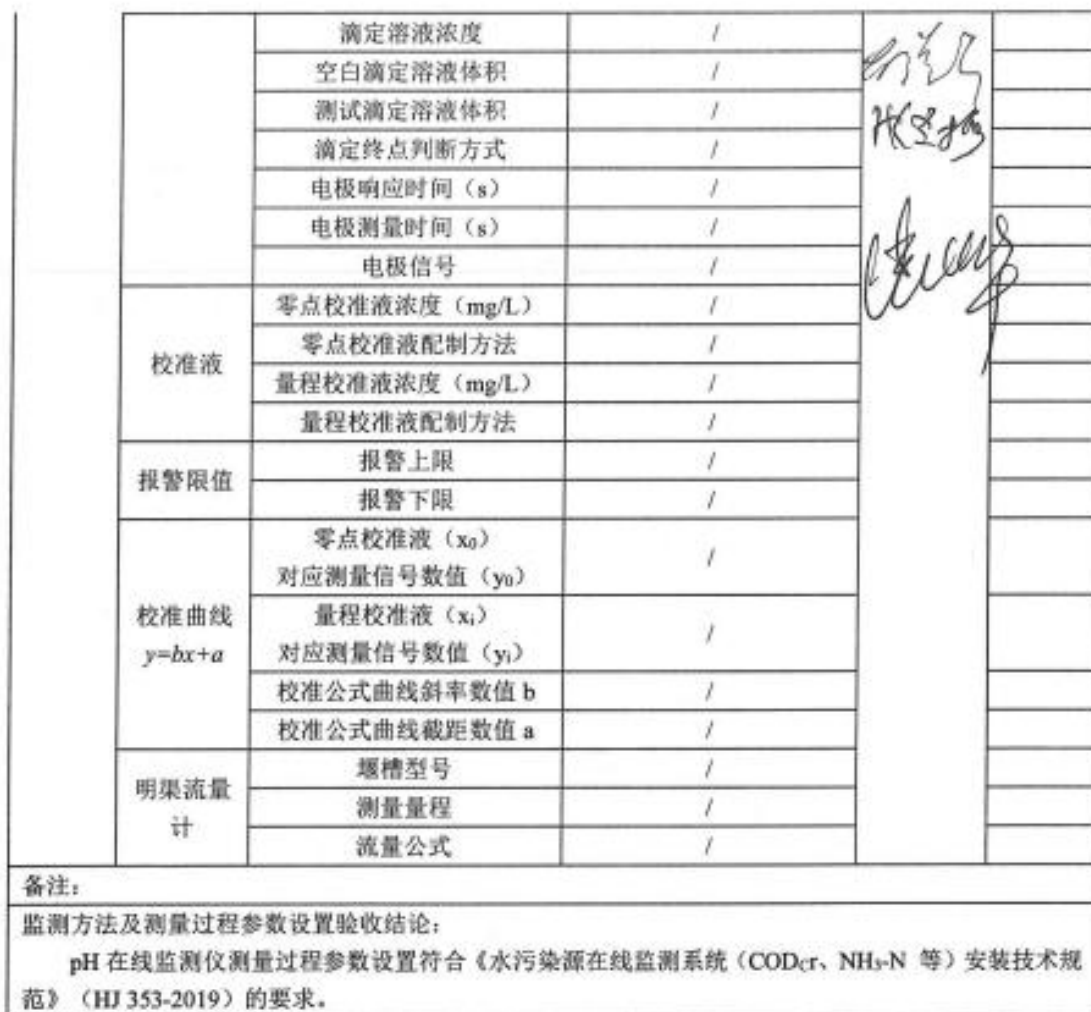 滴定溶液浓度 /
空白滴定溶液体积 /
测试滴定溶液体积 /
滴定终点判断方式 /
电极响应时间（s） /
电极测量时间（s） /
电极信号 /
校准液
零点校准液浓度（mg/L） /
零点校准液配制方法 /
量程校准液浓度（mg/L） /
量程校准液配制方法 /
报警限值
报警上限 /
报警下限 /
校准曲线
y=bx+a
零点校准液（x₀）
对应测量信号数值（y₀） /
量程校准液（xᵢ）
对应测量信号数值（yᵢ） /
校准公式曲线斜率数值 b /
校准公式曲线截距数值 a /
明渠流量
计
堰槽型号 /
测量量程 /
流量公式 /
备注：
监测方法及测量过程参数设置验收结论：
pH 在线监测仪测量过程参数设置符合《水污染源在线监测系统（CODCr、NH₃-N 等）安装技术规
范》（HJ 353-2019）的要求。